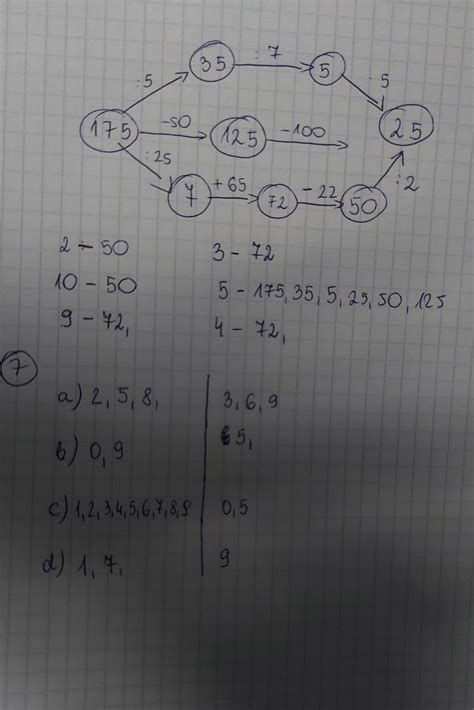 :5 35 :7 5 ·5
175 -50 125 -100 25
:25 7 +65 72 -22 50 :2
2 - 50 3 - 72
10 - 50 5 - 175, 35, 5, 25, 50, 125
9 - 72, 4 - 72,
7
a) 2, 5, 8, 3, 6, 9
b) 0, 9 5,
c) 1,2,3,4,5,6,7,8,9 0,5
d) 1, 7, 9